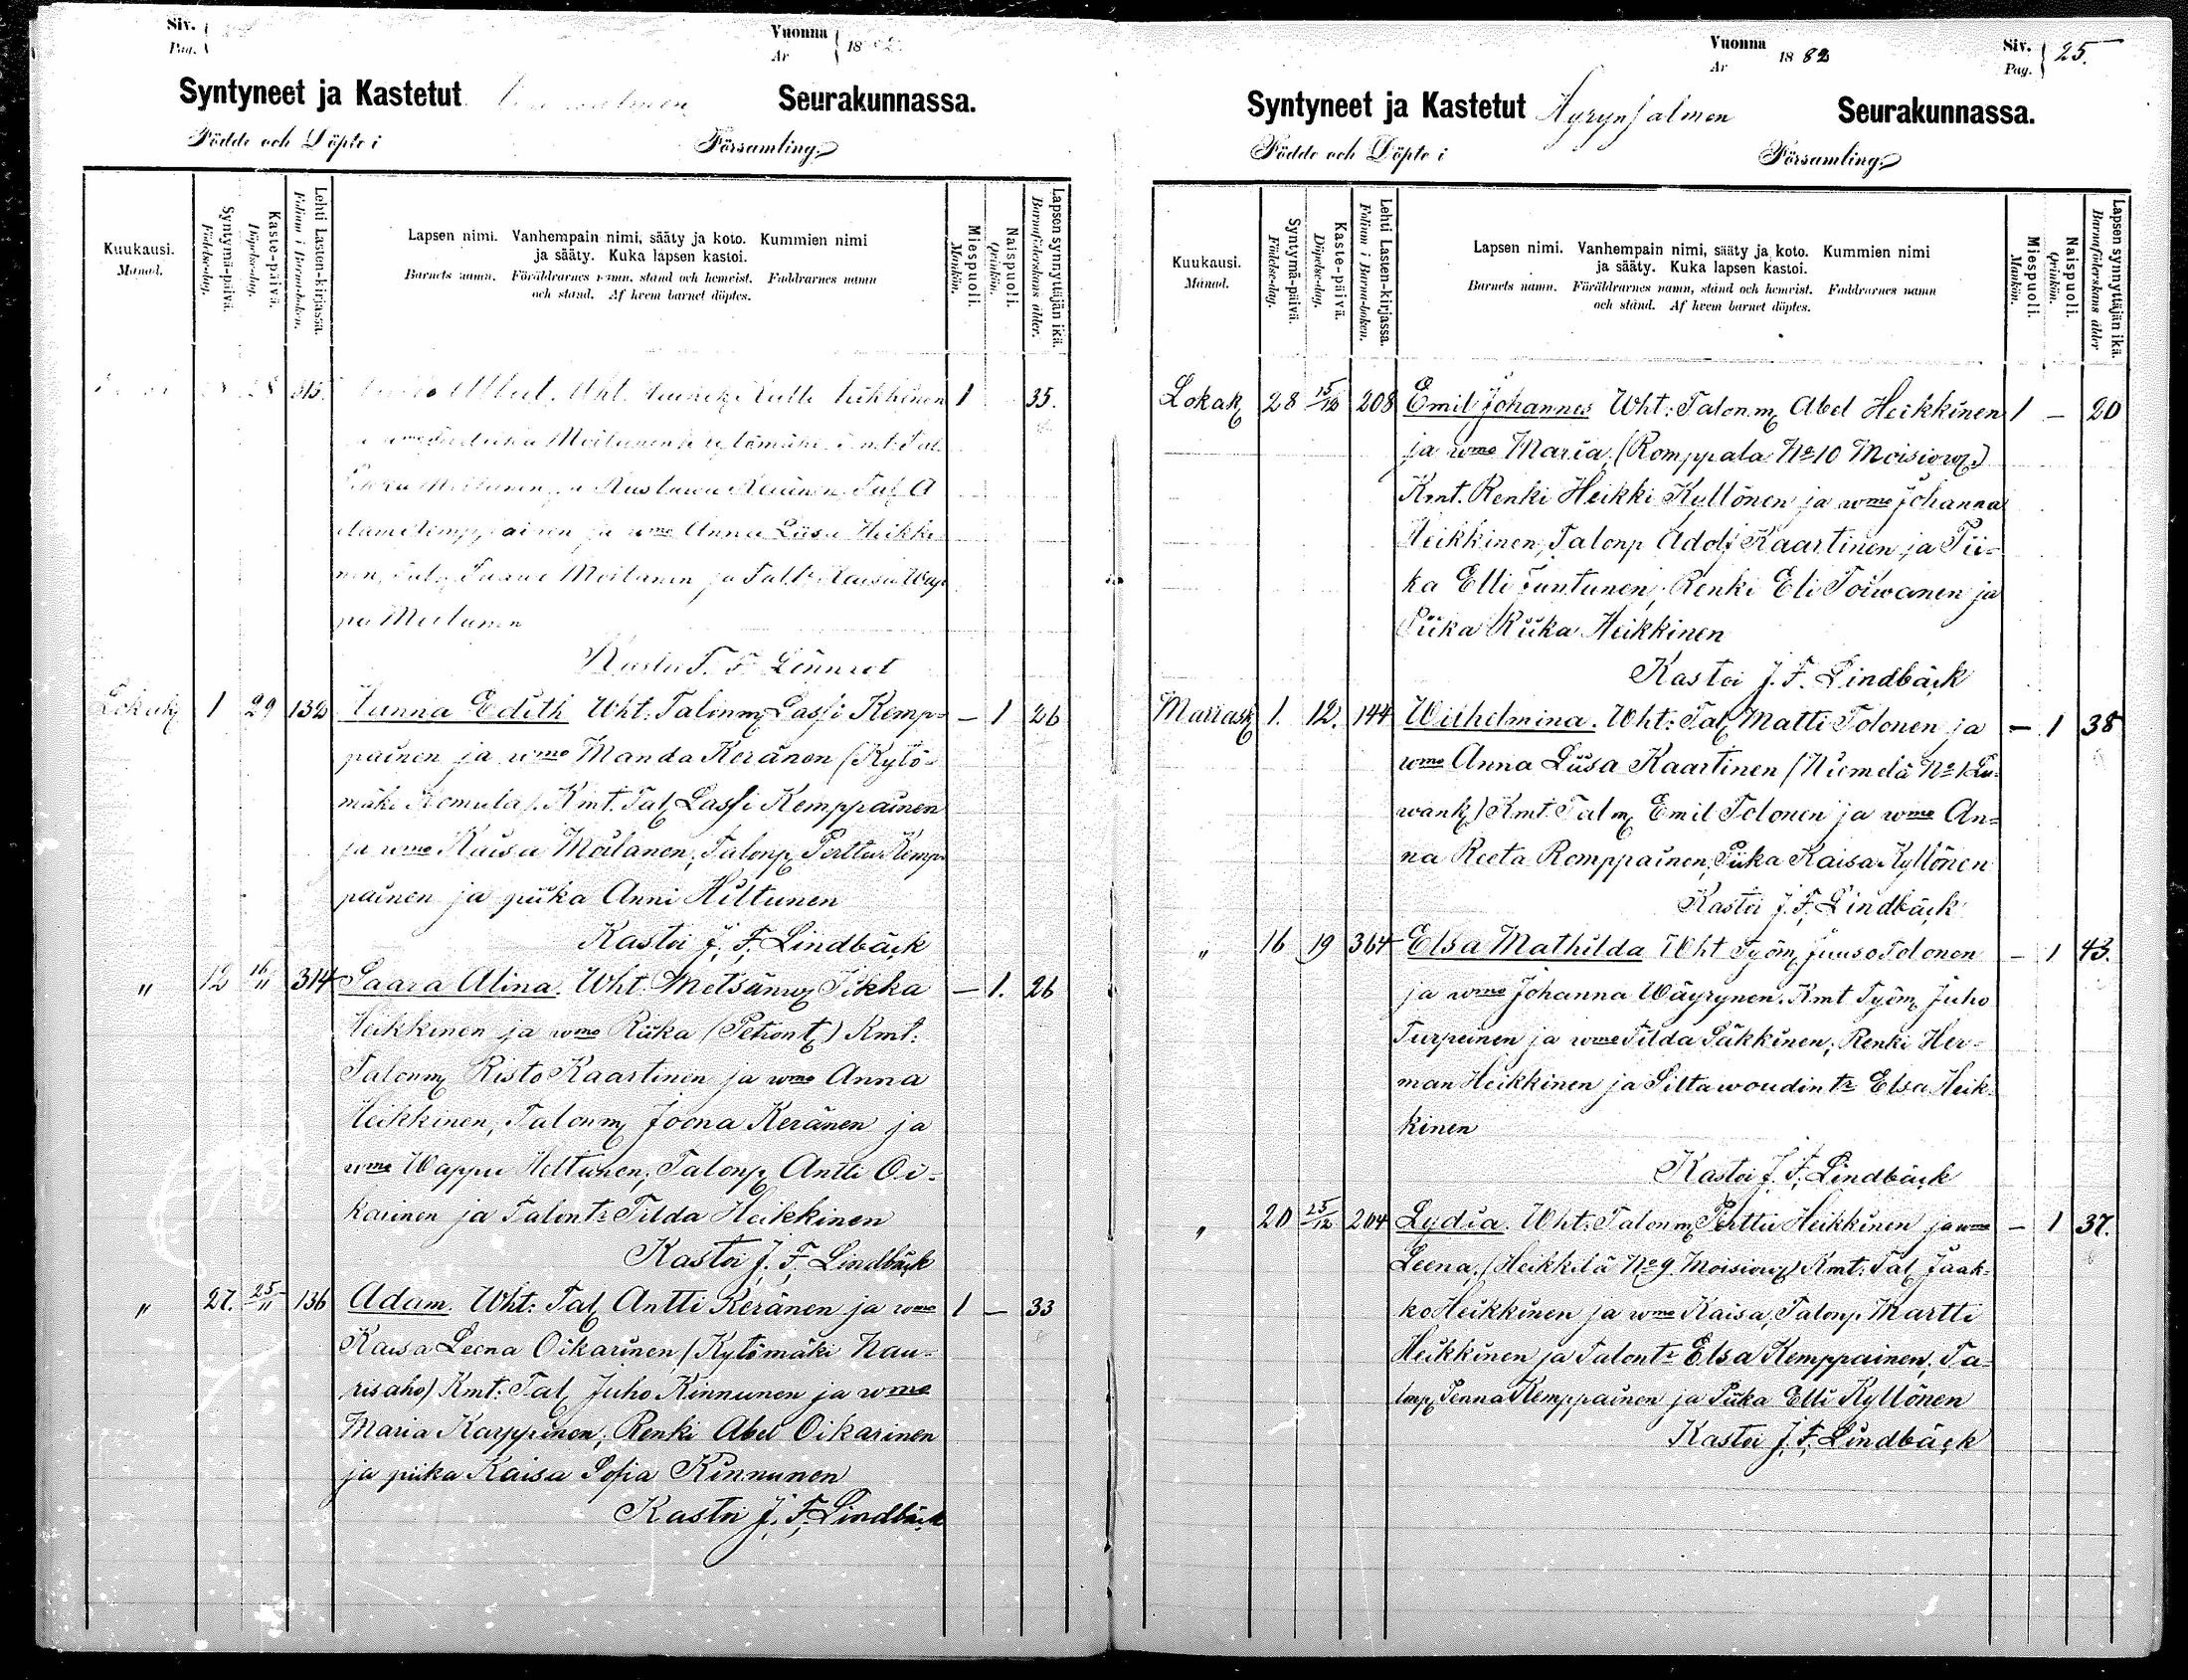 Siv.
Pag.
Vuonna
År 18
Syntyneet ja Kastetut Seurakunnassa.
Födde och Döpte i Församling.
Kuukausi.
Månad.
Syntymä-päivä.
Födelse-dag.
Kaste-päivä.
Döpelse-dag.
Lehti Lasten-kirjassa.
Folium i Barna-boken.
Lapsen nimi. Vanhempain nimi, sääty ja koto. Kummien nimi
ja sääty. Kuka lapsen kastoi.
Barnets namn. Föräldrarnes namn, stånd och hemvist. Faddrarnes namn
och stånd. Af hvem barnet döptes.
Miespuoli.
Mankön.
Naispuoli.
Qvinkön.
Lapsen synnyttäjän ikä.
Barnaföderskans ålder.
28 315. Wht. 1 35.
Moilanen
Moilanen ja
ja wmo Anna Liisa Heikki-
nen, Moilanen ja
Lönnrot
Lokak 1 29 132 Hanna Edith Wht: Talonm Lassi Kemp- — 1 26
painen ja wmo Manda Keränen (Kytö-
mäki Romula). Kmt. Tal Lassi Kemppainen
ja wmo Kaisa Moilanen; Talonp Perttu Kemp-
painen ja piika Anni Hiltunen
Kastoi J. F. Lindbäck
" 12 16/11 314 Saara Alina. Wht. Metsänw Pekka — 1. 26
Heikkinen ja wmo Riika (Petront) Kmt:
Talonm Risto Kaartinen ja wmo Anna
Heikkinen; Talonm Joona Keränen ja
wmo Wappu Hiltunen; Talonp Antti Oi-
karinen ja Talontr Tilda Heikkinen
Kastoi J. F. Lindbäck
" 27. 25/11 136 Adam. Wht: Tal Antti Keränen ja wmo 1 — 33
Kaisa Leena Oikarinen (Kytömäki Nau-
risaho) Kmt: Tal Juho Kinnunen ja wmo
Maria Karppinen; Renki Abel Oikarinen
ja piika Kaisa Sofia Kinnunen
Kastoi J. F. Lindbäck
Vuonna
År 1882
Siv.
Pag. 25.
Syntyneet ja Kastetut Hyrynsalmen Seurakunnassa.
Födde och Döpte i Församling.
Kuukausi.
Månad.
Syntymä-päivä.
Födelse-dag.
Kaste-päivä.
Döpelse-dag.
Lehti Lasten-kirjassa.
Folium i Barna-boken.
Lapsen nimi. Vanhempain nimi, sääty ja koto. Kummien nimi
ja sääty. Kuka lapsen kastoi.
Barnets namn. Föräldrarnes namn, stånd och hemvist. Faddrarnes namn
och stånd. Af hvem barnet döptes.
Miespuoli.
Mankön.
Naispuoli.
Qvinkön.
Lapsen synnyttäjän ikä.
Barnaföderskans ålder
Lokak 28 15/12 208 Emil Johannes Wht: Talonm Abel Heikkinen 1 — 20
ja wmo Maria, (Romppala No 10 Moisiow)
Kmt. Renki Heikki Kyllönen ja wmo Johanna
Heikkinen, Talonp Adolf Kaartinen ja Pii-
ka Elli Juntunen; Renki Eli Toiwanen ja
Piika Riika Heikkinen
Kastoi J. F. Lindbäck
Marrask 1. 12. 144 Wilhelmina. Wht: Tal Matti Tolonen ja — 1 38
wmo Anna Liisa Kaartinen (Niemelä No 1 Lu-
wank) Kmt. Talm Emil Tolonen ja wmo An-
na Reeta Romppainen; Piika Kaisa Kyllönen
Kastoi J. F. Lindbäck
" 16 19 364 Elsa Mathilda Wht Työm Juuso Tolonen — 1 43.
ja wmo Johanna Wäyrynen. Kmt Työm Juho
Turpeinen ja wmo Tilda Pikkinen; Renki Her-
man Heikkinen ja Siltawoudin tr Elsa Heik-
kinen
Kastoi J. F. Lindbäck
" 20 25/12 204 Lydia. Wht: Talonm Perttu Heikkinen ja wmo — 1 37.
Leena, (Heikkilä No 9 Moisiow) Kmt: Tal Jaak-
ko Heikkinen ja wmo Kaisa, Talonp Martti
Heikkinen ja Talontr Elsa Kemppainen; Ta-
lonp Penna Kemppainen ja Piika Elli Kyllönen
Kastoi J. F. Lindbäck